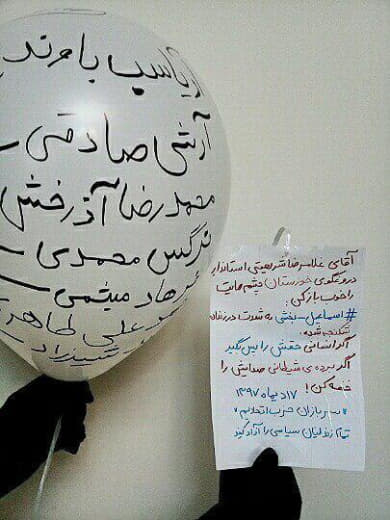 آریاسب باوند
آرش صادقی
محمدرضا آذرخش
نرگس محمدی
فرهاد میثمی
علی طاهری
آقای غلامرضا شریعتی استاندار
دروغگوی خوزستان چشم‌هایت
را خوب باز کن!
#اسماعیل_بخشی به شدت در زندان
شکنجه شده.
اگر انسانی حقش را پس بگیر
اگر برده‌ی شیطانی صدایش را
خفه کن!
۱۷ دیماه ۱۳۹۷
سربازان حزب اتحادیم
تمام زندانیان سیاسی را آزاد کنید